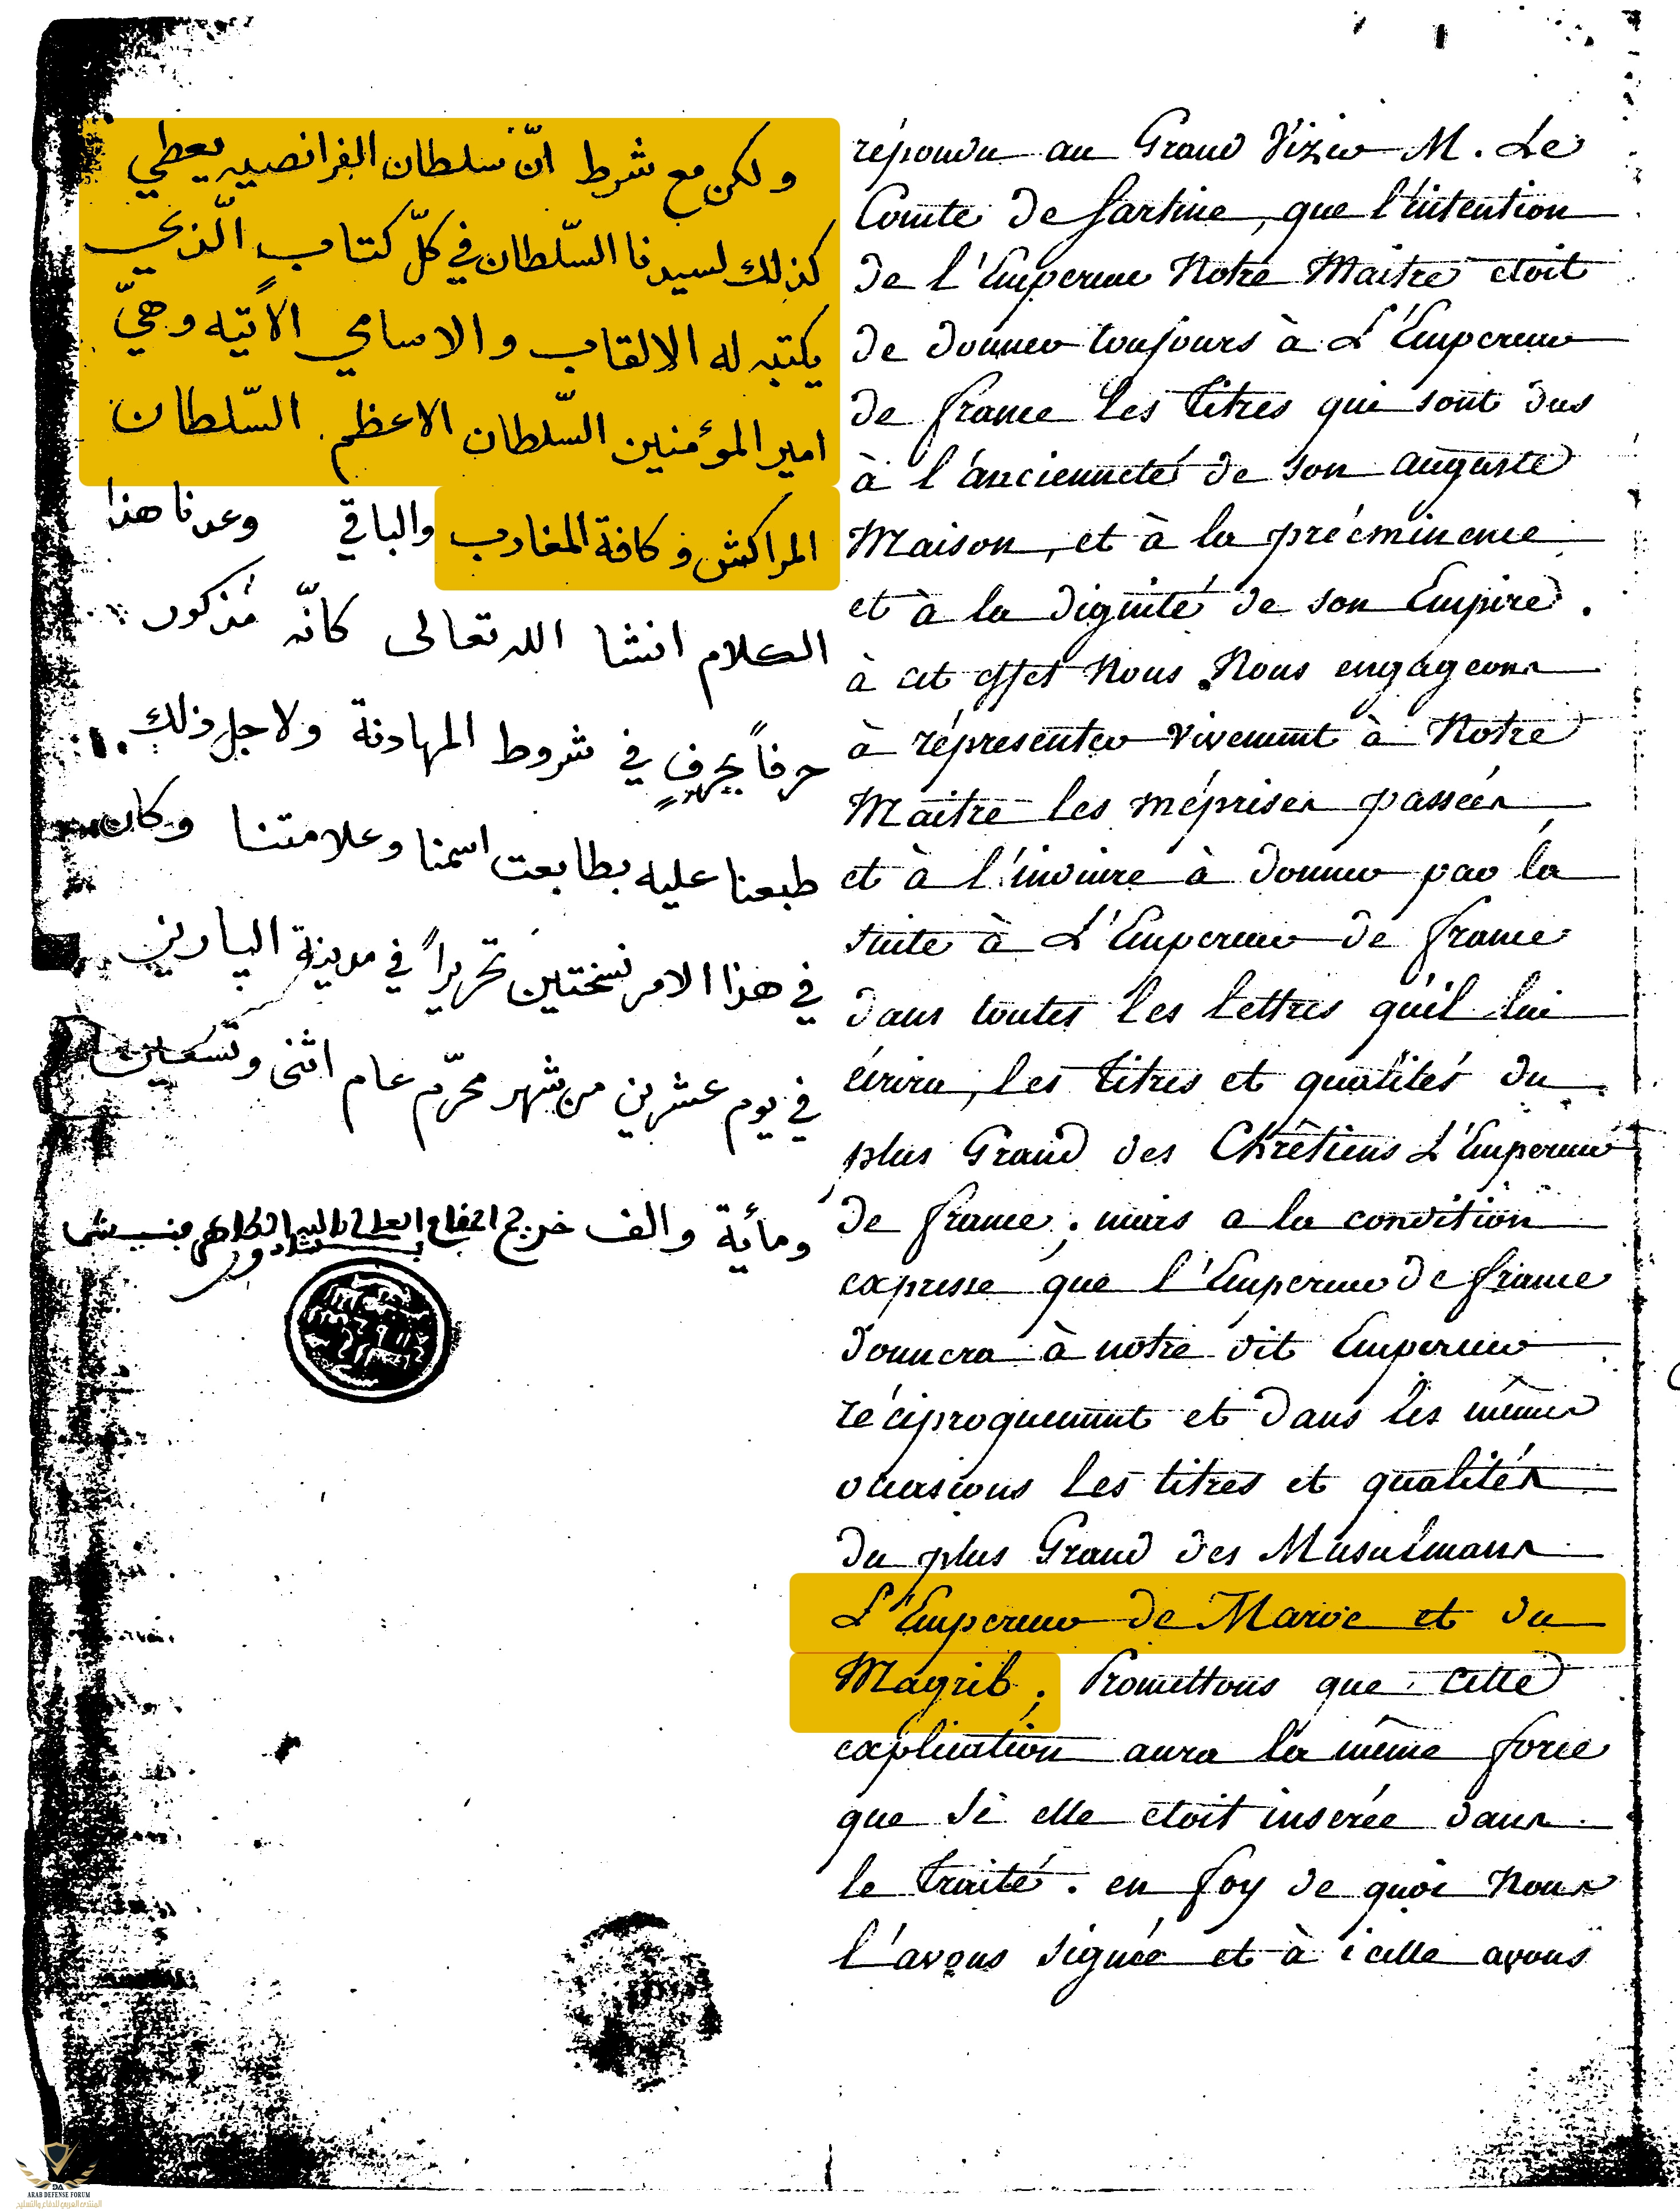 ولكن مع شرط انّ سلطان الفرانصيه يعطي
كذلك لسيدنا السّلطان في كلّ كتاب الّذي
يكتبه له الالقاب والاسامي الآتيه وهيّ
امير المؤمنين السّلطان الاعظم السّلطان
المراكش وكافة المغارب والباقي وعدنا هذا
الكلام انشا الله تعالى كانّه مُذكور
حرفاً بحرفٍ في شروط المهادنة ولاجل ذلك
طبعنا عليه بطابعت اسمنا وعلامتنا وكان
في هذا الامر نسختين تحريراً في مدينة الپاريز
في يوم عشرين من شهر محرّم عام اثنى وتسعين
ومأية والف خديم المقام العالي بالله الطاهر فنيش
répondu au Grand Vizir M. Le
Comte de Sartine, que l'intention
de l'Empereur Notre Maitre etoit
de donner toujours à L'Empereur
de france les titres qui sont dus
à l'ancienneté de son auguste
Maison, et à la prééminence
et à la dignité de son Empire.
à cet effet Nous Nous engageons
à réprésenter vivement à Notre
Maitre les méprises passées
et à l'induire à donner par la
suite à L'Empereur de france
dans toutes les lettres qu'il lui
écrira, les titres et qualités du
plus Grand des Chrêtiens L'Empereur
de france; mais a la condition
expresse que l'Empereur de france
donnera à notre dit Empereur
réciproquement et dans les mêmes
occasions les titres et qualités
du plus Grand des Musulmans
L'Empereur de Maroc et du
Magrib; Promettons que cette
explication aura la même force
que si elle etoit inserée dans
le traité. en foy de quoi Nous
l'avons signée et à icelle avons
ARAB DEFENSE FORUM
المنتدى العربي للدفاع والتسليح